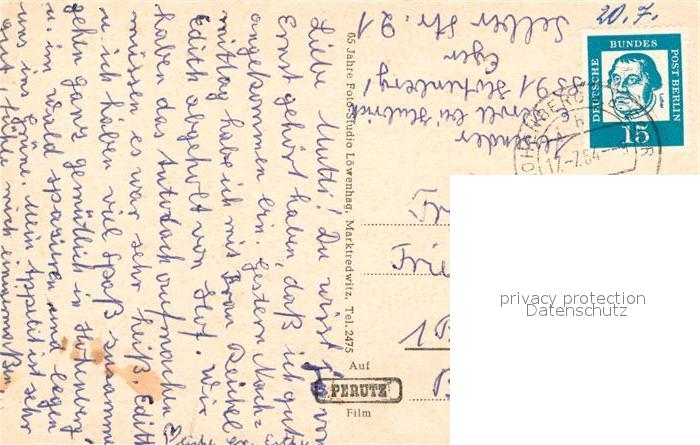 20.7.
DEUTSCHE
BUNDES
POST BERLIN
Luther
15
17.-7.64
Absender
bei
8591
Eger
Selber Str. 21
65 Jahre Foto-Studio Löwenhag, Marktredwitz, Tel. 2475
Liebe Mutti! Du wirst von
Ernst gehört haben, daß ich gut
angekommen bin. Gestern Nach-
mittag habe ich mit Frau
Edith abgeholt von Hof. Wir
haben das Autodach aufmachen
müssen es war sehr heiß. Edith
u ich haben viel Spaß zusammen
gehn ganz gemütlich in
u. im Wald spazieren und legen
uns ins Grüne. Mein Appetit ist sehr
gut, fühle mich
Auf
PERUTZ
Film
privacy protection
Datenschutz